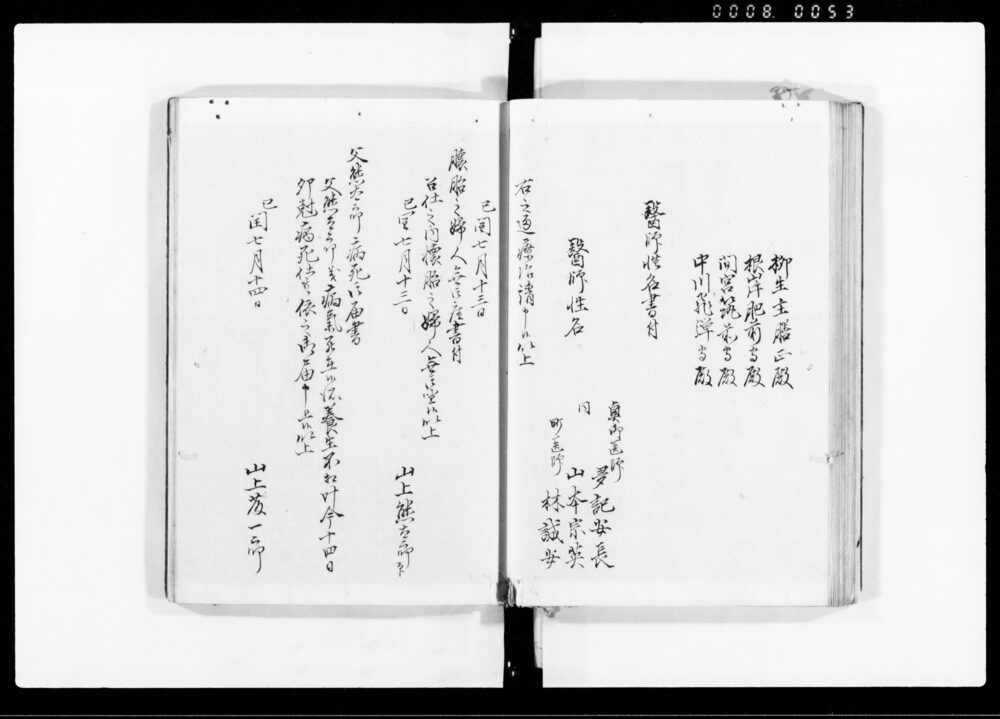 0008 0053
柳生主膳正殿
根岸肥前守殿
間宮筑前守殿
中川飛騨守殿
醫師性名書付
奥御医師
夢記安長
同
山本宗英
町医師
林誠安
醫師性名
右之通療治請申候以上
巳閏七月十三日
懐胎之婦人無御座書付
召仕之内懐胎之婦人無御座候以上
巳閏七月十三日
山上熊太郎
父熊太郎病死御届書
父熊太郎義病氣罷在候処養生不相叶今十四日
卯刻病死仕候依之御届申上候以上
巳閏七月十四日
山上藤一郎